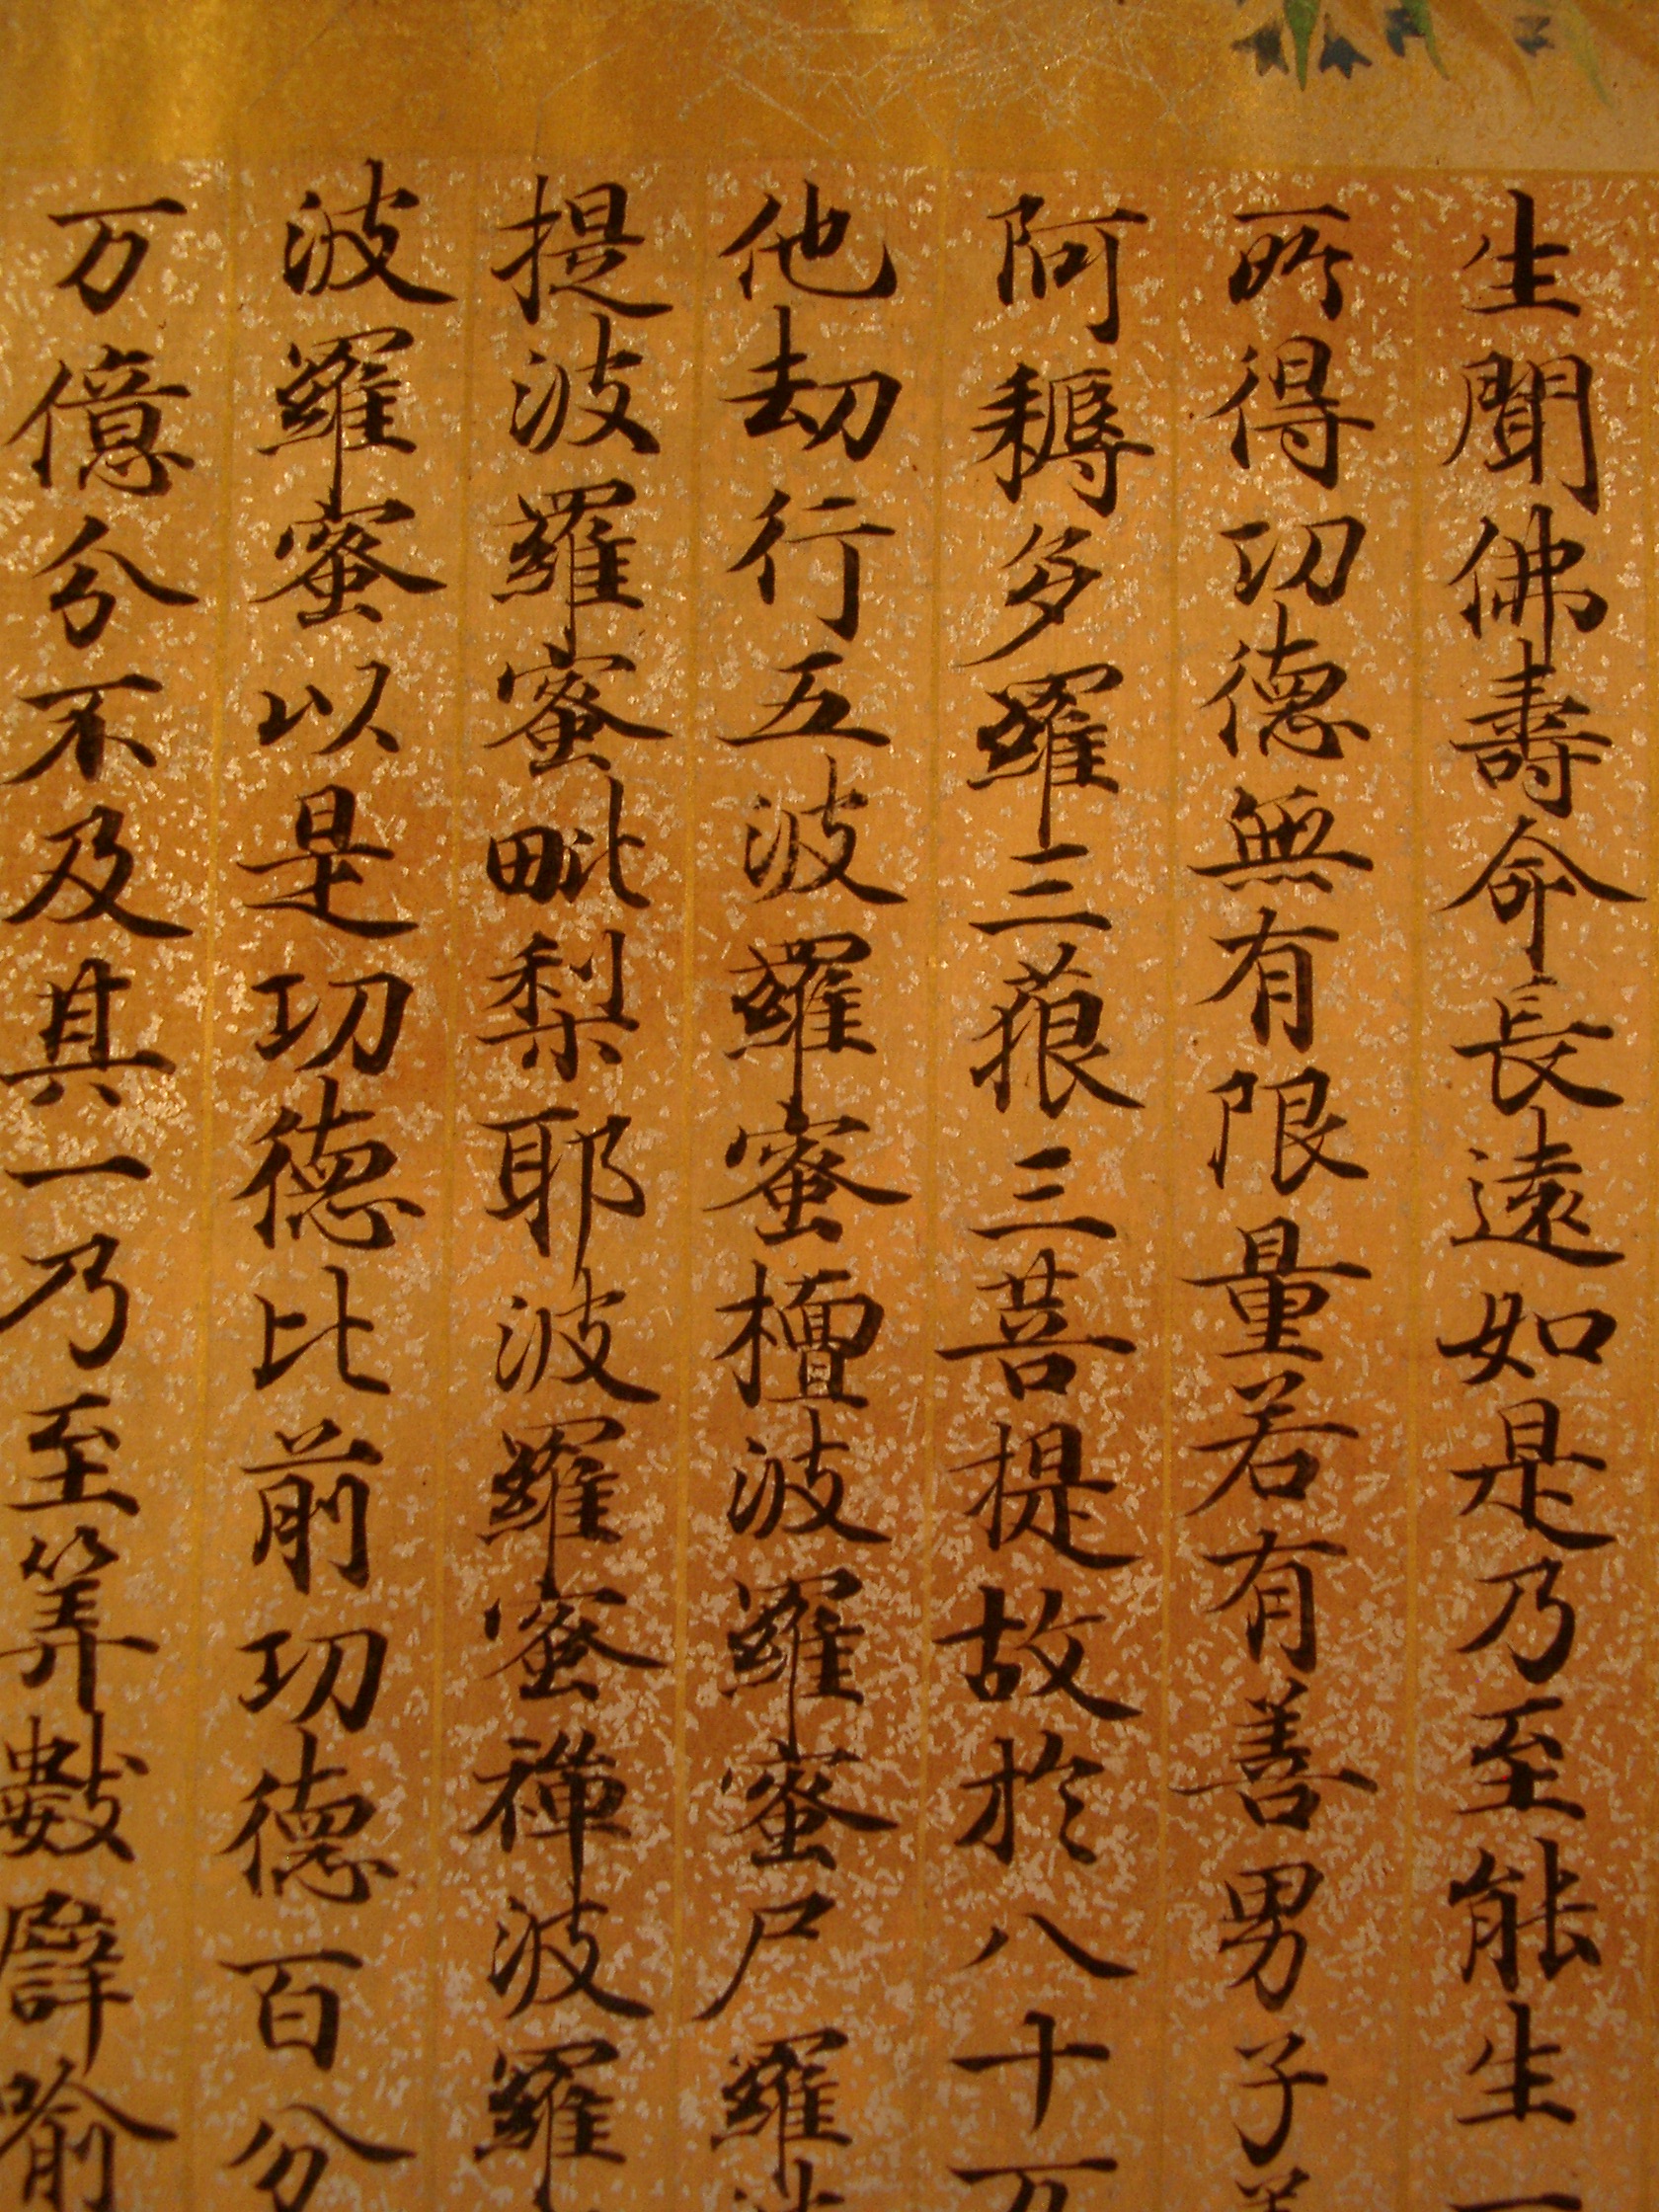 生聞佛壽命長遠如是乃至能生一
所得功德無有限量若有善男子善
阿耨多羅三藐三菩提故於八十万
他劫行五波羅蜜檀波羅蜜尸羅波
提波羅蜜毗梨耶波羅蜜禪波羅
波羅蜜以是功德比前功德百分
万億分不及其一乃至筭數譬喻